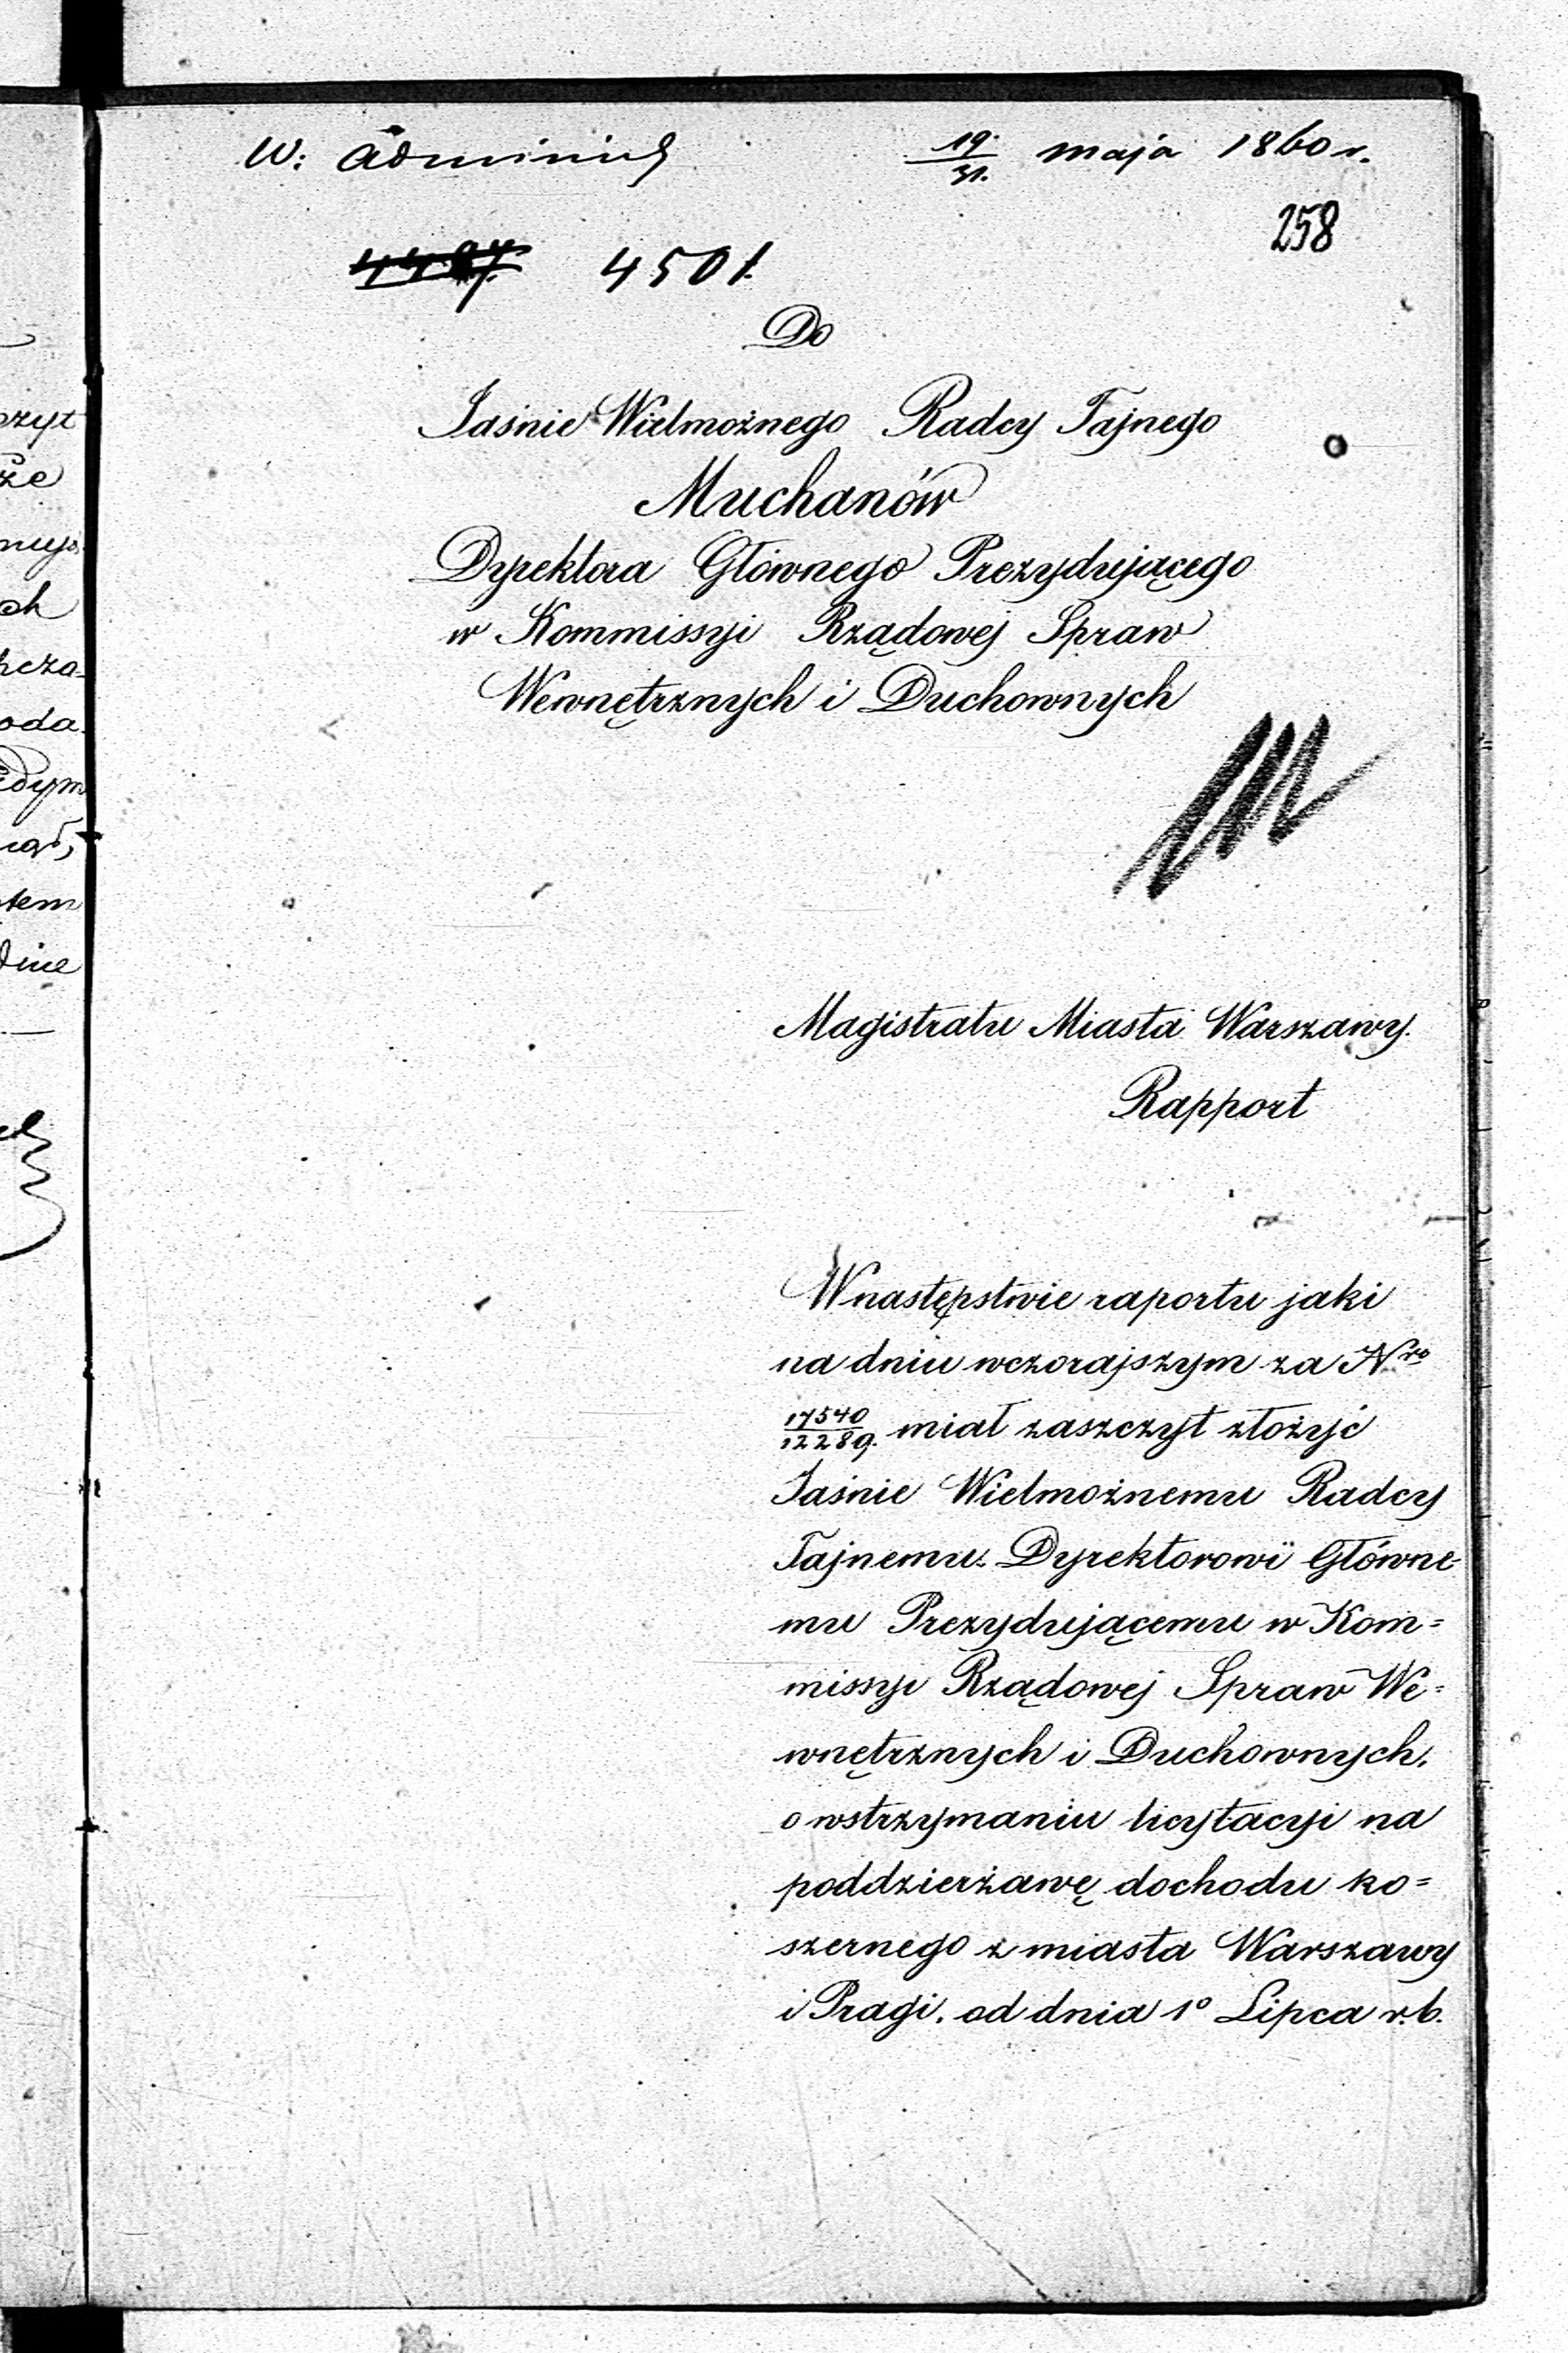 W: Administ 19/31. maja 1860 r.
258
4501.
Do
Jaśnie Wielmożnego Radcy Tajnego
Muchanów
Dyrektora Głównego Prezydującego
w Kommissyi Rządowej Spraw
Wewnętrznych i Duchownych
Magistratu Miasta Warszawy.
Rapport
W następstwie raportu jaki
na dniu wczorajszym za Nro
17540/12289. miał zaszczyt złożyć
Jaśnie Wielmożnemu Radcy
Tajnemu. Dyrektorowi Główne-
mu Prezydującemu w Kom=
missyi Rządowej Spraw We=
wnętrznych i Duchownych.
o wstrzymaniu licytacyi na
poddzierżawę dochodu ko=
szernego z miasta Warszawy
i Pragi. od dnia 1o Lipca r.b.